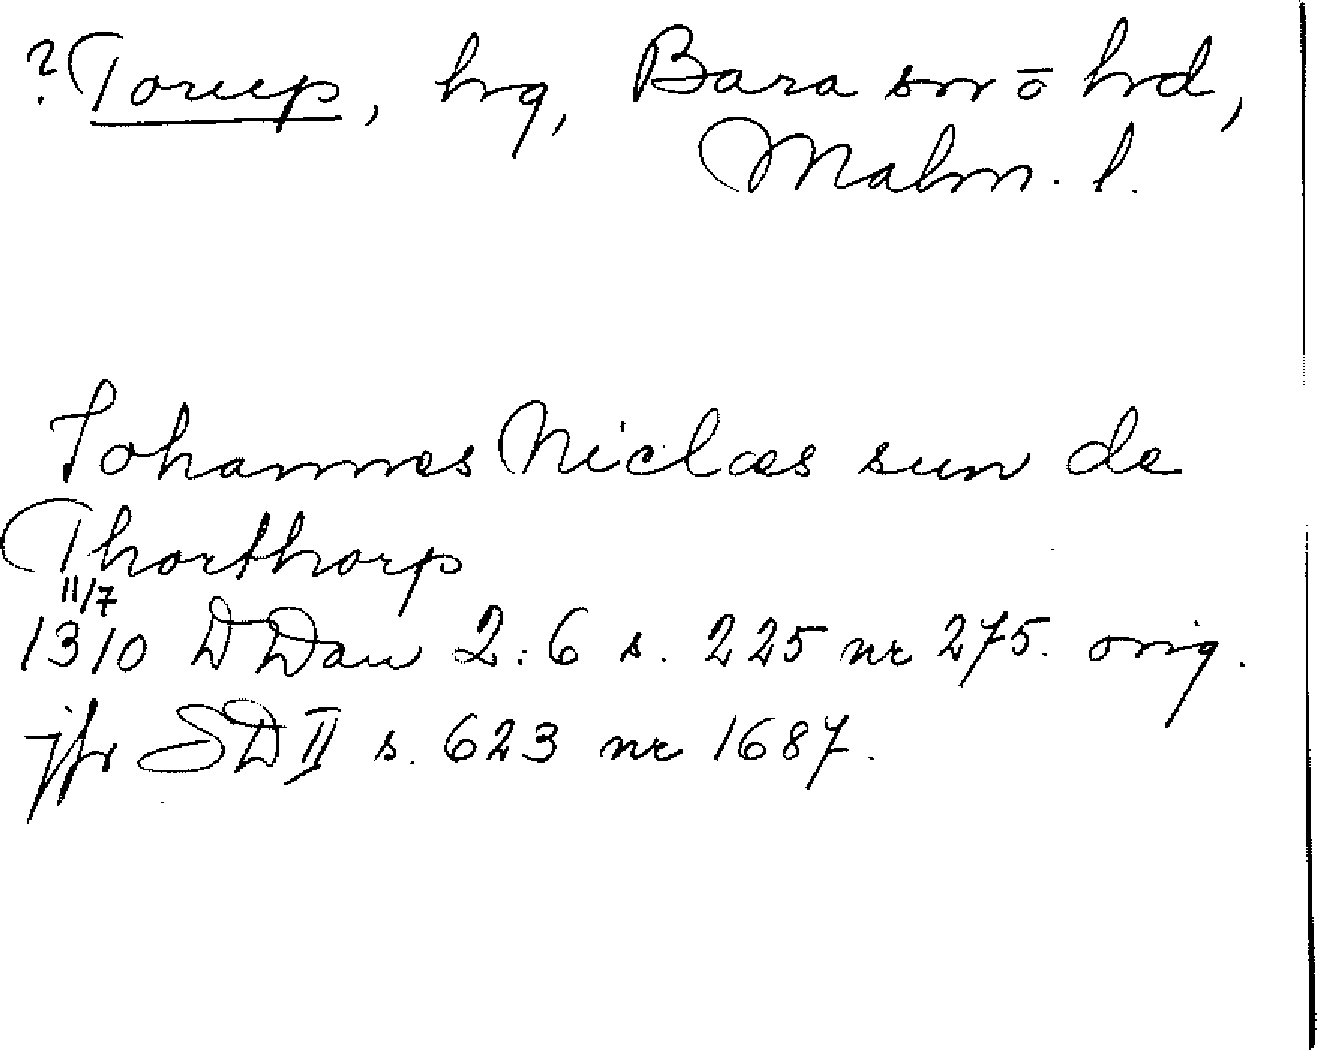 ? Torup, hg, Bara sn o hd,
Malm. l.
Johannes Niclæs sun de
Thorthorp
11/7
1310 DDan 2:6 s. 225 nr 275. orig.
jfr SD II s. 623 nr 1687.